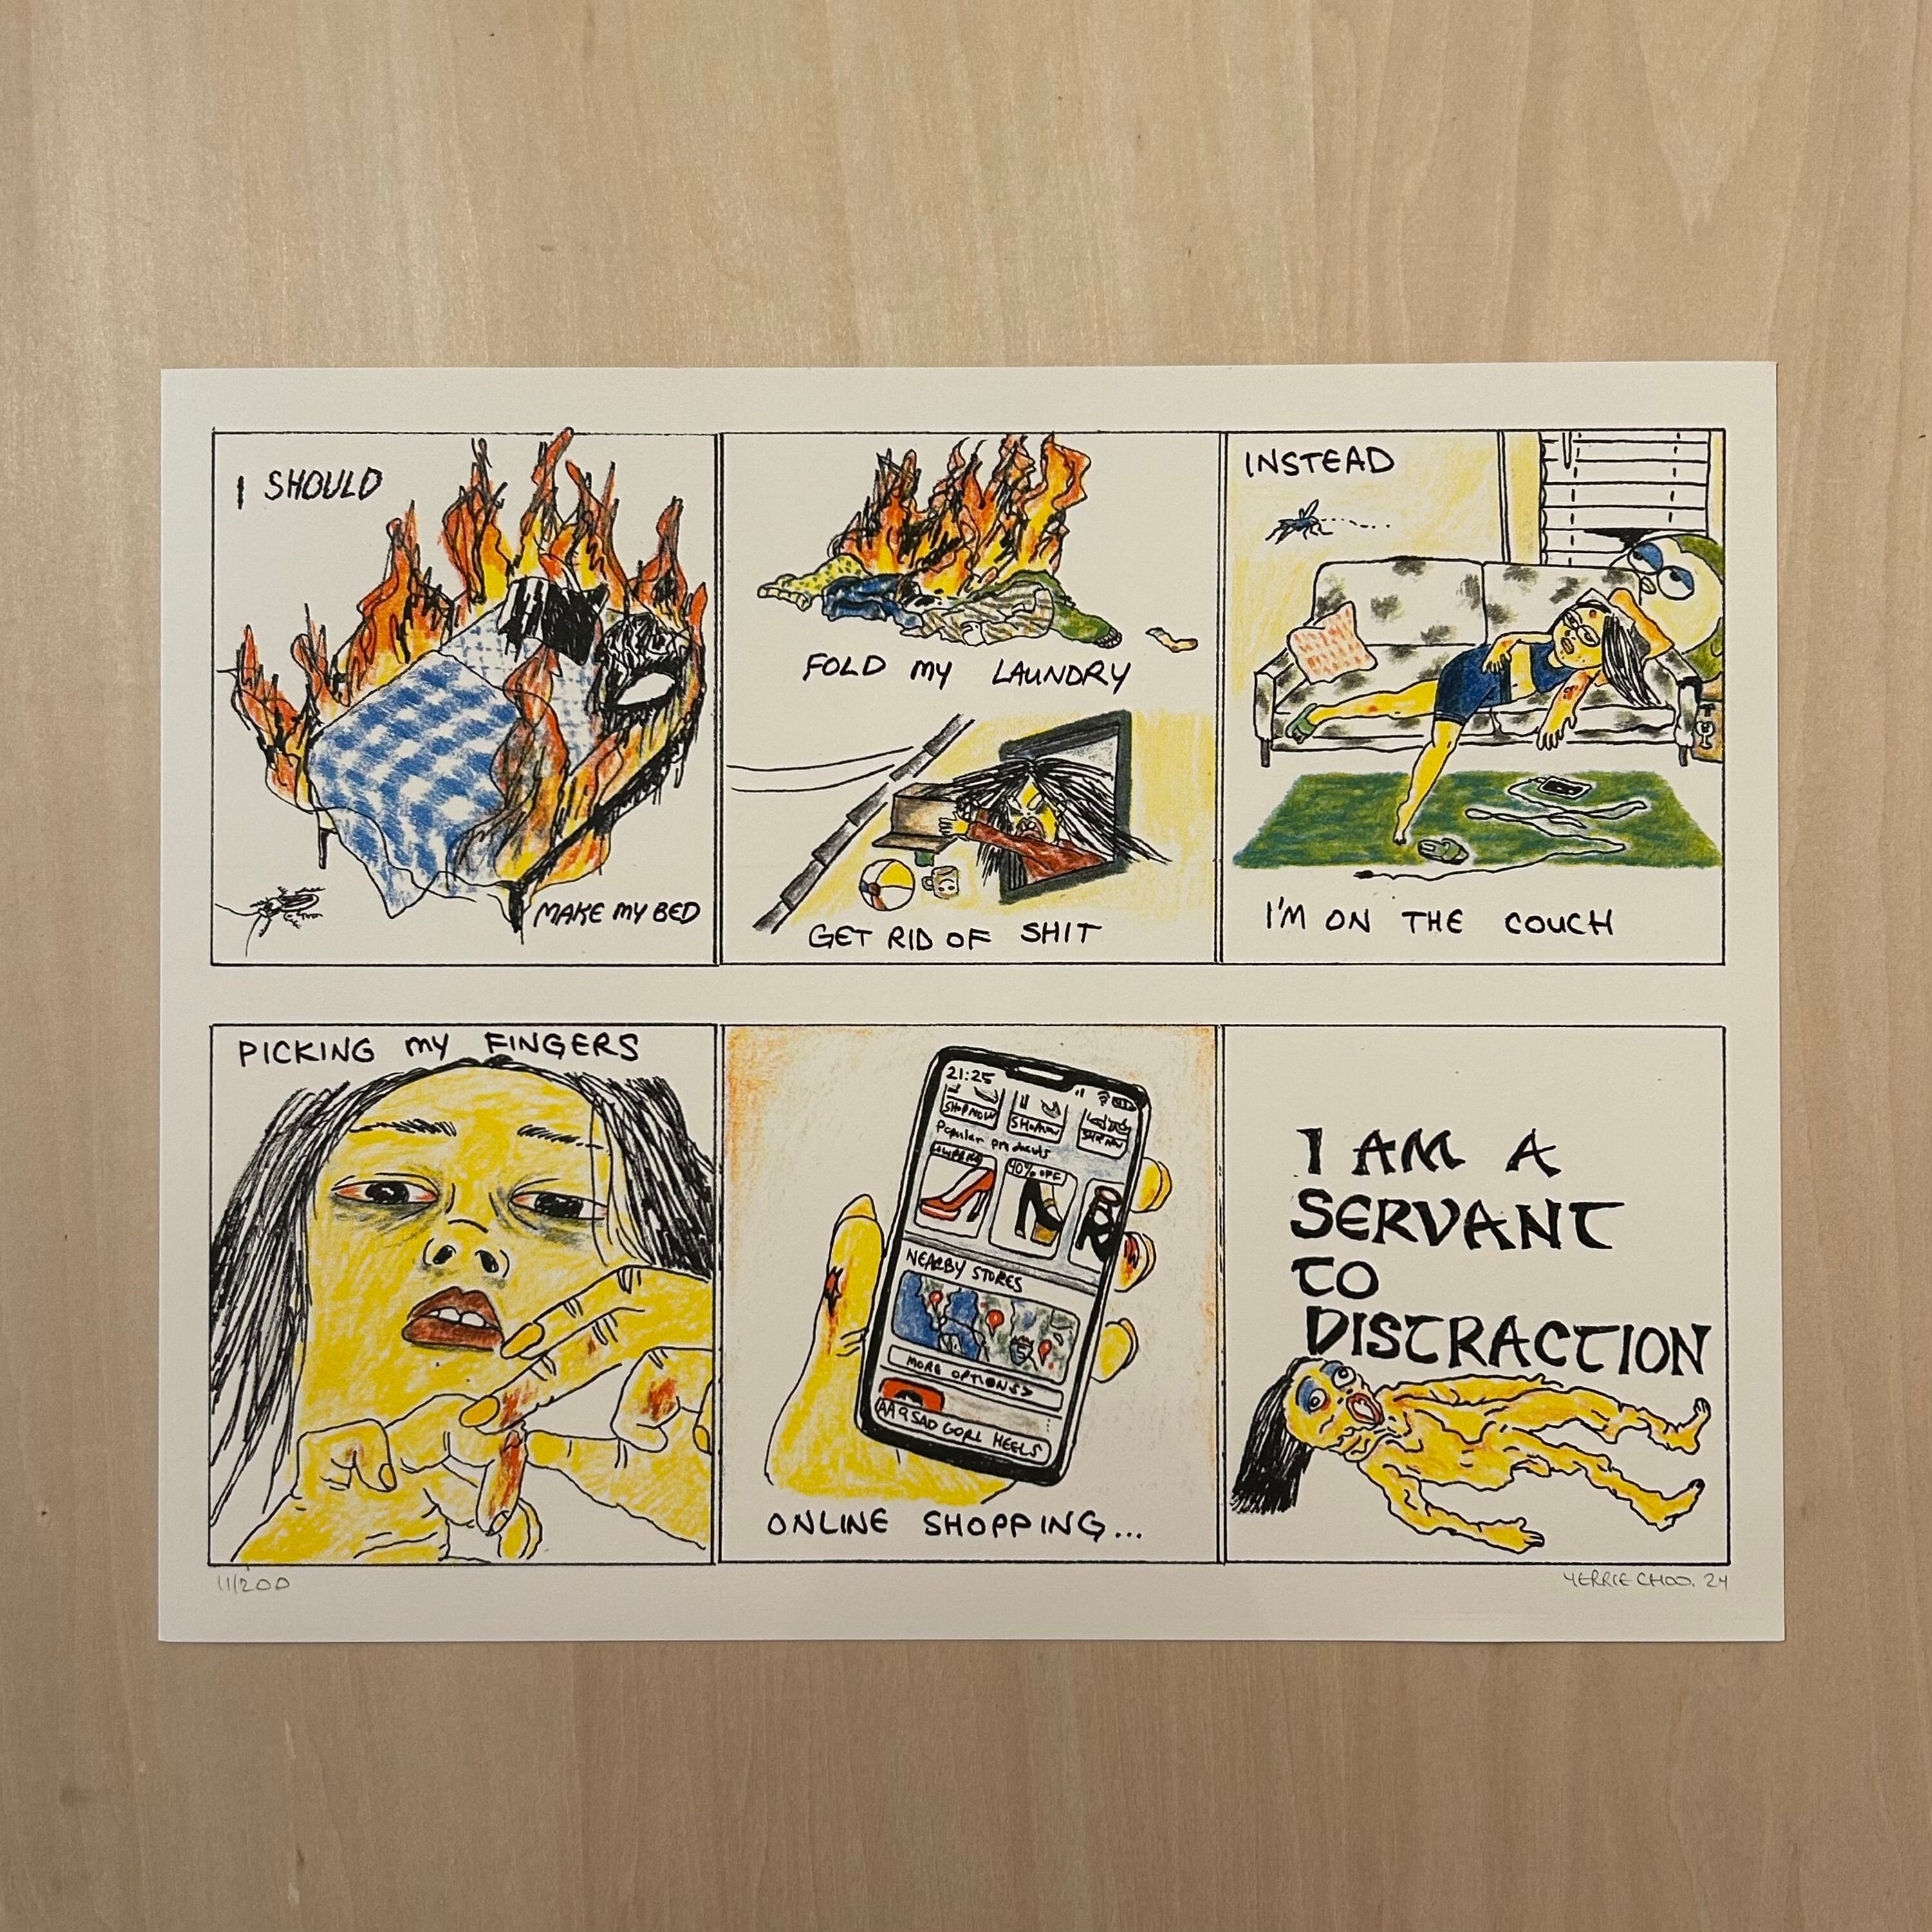 I SHOULD
MAKE MY BED
FOLD MY LAUNDRY
GET RID OF SHIT
INSTEAD
I'M ON THE COUCH
PICKING MY FINGERS
21:25
SHOP NOW
SHOP NOW
SHOP NOW
Popular products
40% OFF
NEARBY STORES
MORE OPTIONS>
SAD GORL HEELS
ONLINE SHOPPING...
I AM A
SERVANT
TO
DISTRACTION
11/200
YERRIE CHOO. 24